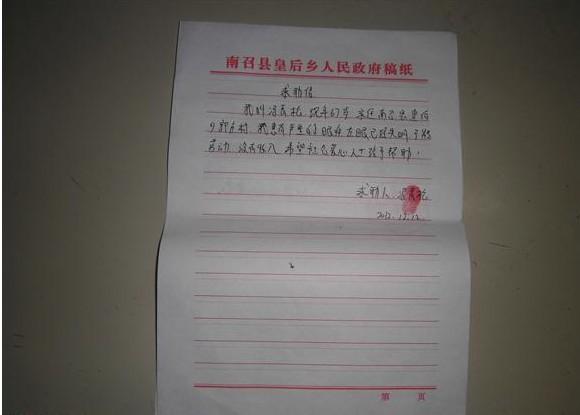 南召县皇后乡人民政府稿纸
求助信
我叫 现年67岁 家住南召县皇后
乡郭庄村 我患有严重的眼疾 左眼已经失明 不能
劳动 没有收入 希望社会爱心人士给予帮助!
求助人
2012.12.12
第 页